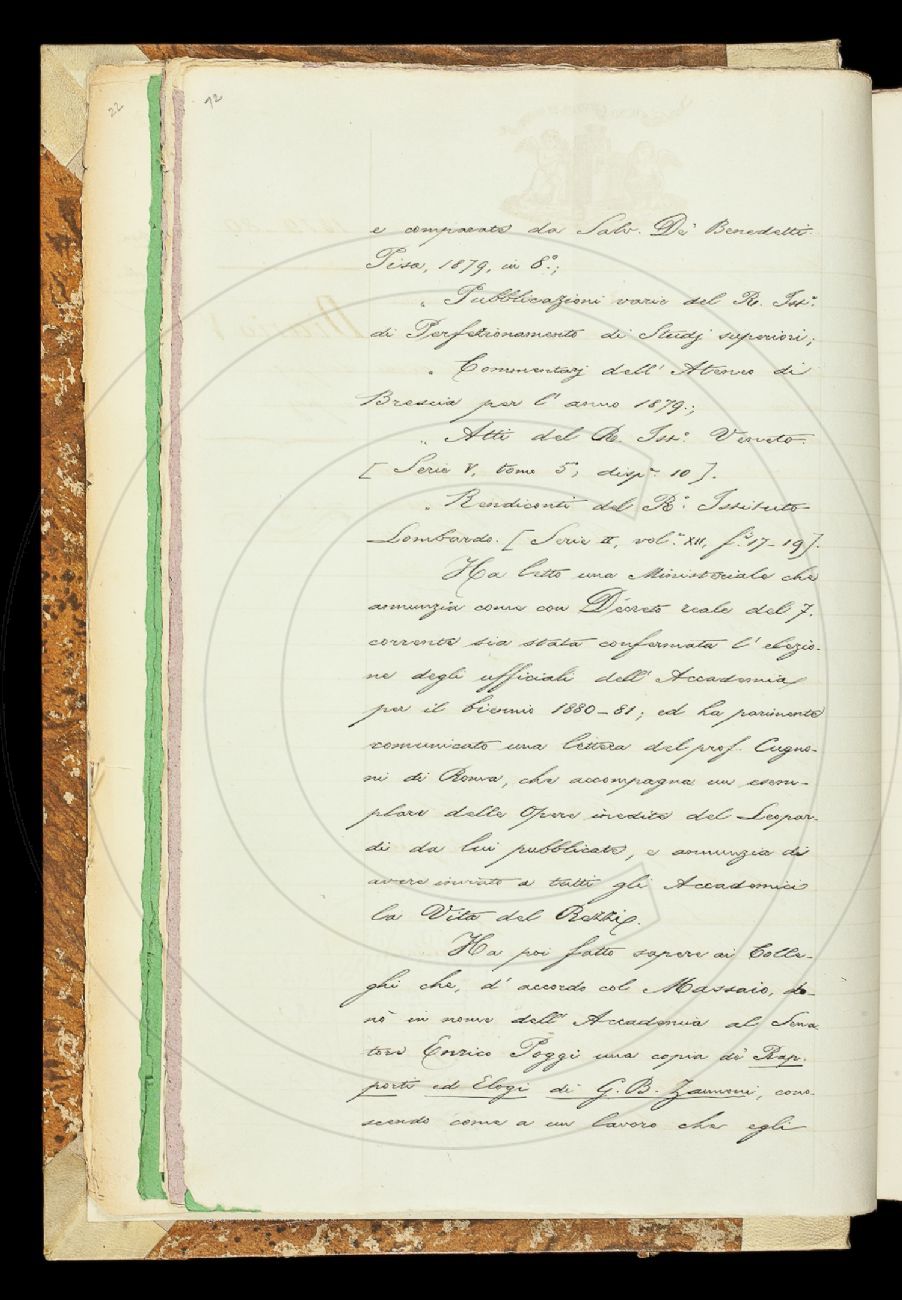 22
12
e comparate da Salv. De' Benedetti.
Pisa, 1879, in 8°.;
" Pubblicazioni varie del R. Iss.°
di Perfezionamento di Studj superiori;
" Commentarj dell' Ateneo di
Brescia per l' anno 1879.;
" Atti del R. Iss.° Veneto.
[ Serie V, tomo 5°, disp.ª 10 ].
" Rendiconti del R.° Issituto
Lombardo. [ Serie II, vol.° XII, f.° 17-19 ].
Ha letto una Ministeriale che
annunzia come con Decreto reale del 7.
corrente sia stata confermata l' elezio-
ne degli ufficiali dell' Accademia
per il biennio 1880-81; ed ha parimente
comunicato una lettera del prof. Cugno-
ni di Roma, che accompagna un esem-
plare delle Opere inedite del Leopar-
di da lui pubblicate, e annunzia di
avere inviato a tutti gli Accademici
la Vita del Rezzi.
Ha poi fatto sapere ai Colle-
ghi che, d' accordo col Massaio, do-
nò in nome dell' Accademia al Sena-
tore Enrico Poggi una copia de' Rap-
porti ed Elogi di G. B. Zannoni, cono-
scendo come a un lavoro che egli